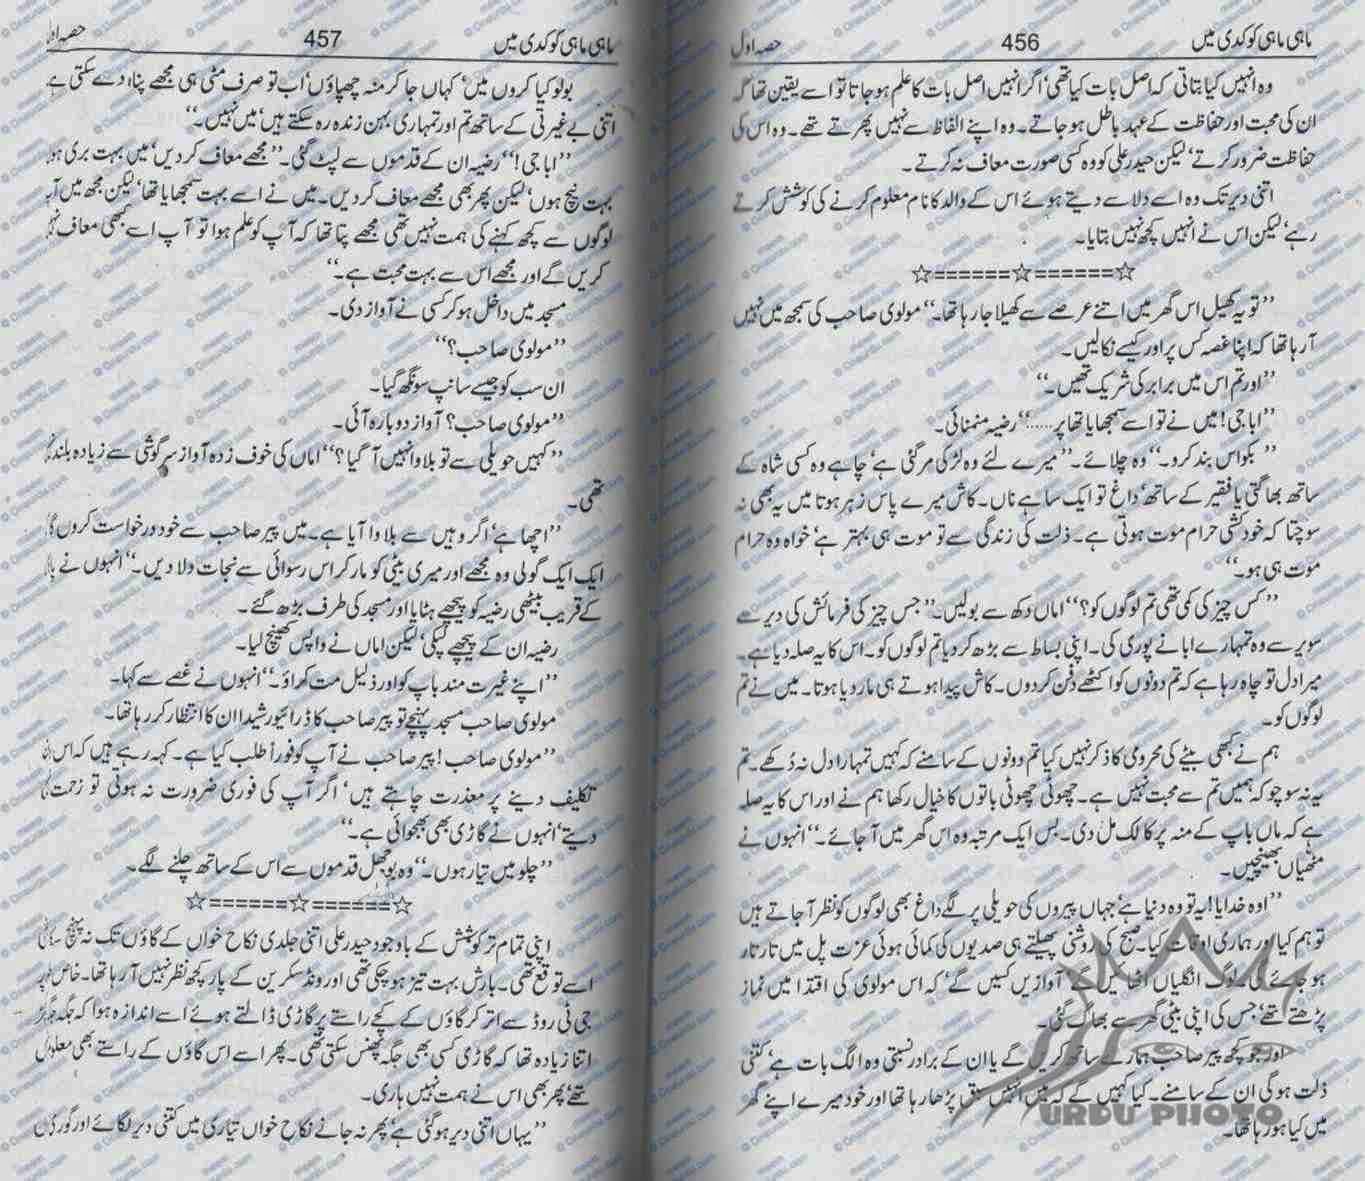 ماہی ماہی کوکدی میں 456 حصہ اول
وہ انہیں کیا بتاتی کہ اصل بات کیا تھی‘ اگر انہیں اصل بات کا علم ہو جاتا تو اسے یقین تھا کہ
ان کی محبت اور حفاظت کے عہد باطل ہو جاتے۔ وہ اپنے الفاظ سے نہیں پھرتے تھے۔ وہ اس کی
حفاظت ضرور کرتے‘ لیکن حیدر علی کو وہ کسی صورت معاف نہ کرتے۔
اتنی دیر تک وہ اسے دلاسے دیتے ہوئے اس کے والد کا نام معلوم کرنے کی کوشش کرتے
رہے‘ لیکن اس نے انہیں کچھ نہیں بتایا۔
☆======☆======☆
’’تو یہ کھیل اس گھر میں اتنے عرصے سے کھیلا جا رہا تھا۔‘‘ مولوی صاحب کی سمجھ میں نہیں
آ رہا تھا کہ اپنا غصہ کس پر اور کیسے نکالیں۔
’’اور تم اس میں برابر کی شریک تھیں۔‘‘
’’ابا جی! میں نے تو اسے سمجھایا تھا پر......‘‘ رضیہ منمنائی۔
’’بکواس بند کرو۔‘‘ وہ چلائے۔ ’’میرے لئے وہ لڑکی مر گئی ہے‘ چاہے وہ کسی شاہ کے
ساتھ بھاگتی یا فقیر کے ساتھ‘ داغ تو ایک سا ہے ناں۔ کاش میرے پاس زہر ہوتا میں یہ بھی نہ
سوچتا کہ خودکشی حرام موت ہوتی ہے۔ ذلت کی زندگی سے تو موت ہی بہتر ہے‘ خواہ وہ حرام
موت ہی ہو۔‘‘
’’کس چیز کی کمی تھی تم لوگوں کو؟‘‘ اماں دکھ سے بولیں۔ ’’جس چیز کی فرمائش کی دیر سے
سویر سے وہ تمہارے ابا نے پوری کی۔ اپنی بساط سے بڑھ کر دیا تم لوگوں کو۔ اس کا یہ صلہ دیا ہے۔
میرا دل تو چاہ رہا ہے کہ تم دونوں کو اکٹھے دفن کر دوں۔ کاش پیدا ہوتے ہی مار دیا ہوتا۔ میں نے تم
لوگوں کو۔
ہم نے کبھی بیٹے کی محرومی کا ذکر نہیں کیا تم دونوں کے سامنے کہ کہیں تمہارا دل نہ دُکھے۔ تم
یہ نہ سوچو کہ ہمیں تم سے محبت نہیں ہے۔ چھوٹی چھوٹی باتوں کا خیال رکھا ہم نے اور اس کا یہ صلہ
ہے کہ ماں باپ کے منہ پر کالک مل دی۔ بس ایک مرتبہ وہ اس گھر میں آ جائے۔‘‘ انہوں نے
مٹھیاں بھینچیں۔
’’اوہ خدایا! یہ تو وہ دنیا ہے‘ جہاں پیروں کی حویلی پر لگے داغ بھی لوگوں کو نظر آ جاتے ہیں
تو ہم کیا اور ہماری اوقات کیا۔ صبح کی روشنی پھیلتے ہی صدیوں کی کمائی ہوئی عزت پل میں تار تار
ہو جائے گی۔ لوگ انگلیاں اٹھائیں گے‘ آوازیں کسیں گے‘ کہ اس مولوی کی اقتدا میں نماز
پڑھتے تھے‘ جس کی اپنی بیٹی گھر سے بھاگ گئی۔
اور جو کچھ پیر صاحب ہمارے ساتھ کریں گے یا ان کے برادر نسبتی وہ الگ بات ہے‘ کتنی
ذلت ہوگی ان کے سامنے۔ کیا کہیں گے کہ میں انہیں سبق پڑھا رہا تھا اور خود میرے اپنے گھر
میں کیا ہو رہا تھا۔
URDU PHOTO
ماہی ماہی کوکدی میں 457 حصہ اول
بولو کیا کروں میں‘ کہاں جا کر منہ چھپاؤں‘ اب تو صرف مٹی ہی مجھے پناہ دے سکتی ہے
اتنی بے غیرتی کے ساتھ تم اور تمہاری بہن زندہ رہ سکتے ہیں‘ میں نہیں۔‘‘
’’ابا جی!‘‘ رضیہ ان کے قدموں سے لپٹ گئی۔ ’’مجھے معاف کر دیں‘ میں بہت بری ہوں
بہت نیچ ہوں‘ لیکن پھر بھی مجھے معاف کر دیں۔ میں نے اسے بہت سمجھایا تھا‘ لیکن مجھ میں آپ
لوگوں سے کچھ کہنے کی ہمت نہیں تھی مجھے پتا تھا کہ آپ کو علم ہوا تو آپ اسے کبھی معاف نہیں
کریں گے اور مجھے اس سے بہت محبت ہے۔‘‘
مسجد میں داخل ہو کر کسی نے آواز دی۔
’’مولوی صاحب؟‘‘
ان سب کو جیسے سانپ سونگھ گیا۔
’’مولوی صاحب؟ آواز دوبارہ آئی۔
’’کہیں حویلی سے تو بلاوا نہیں آ گیا؟‘‘ اماں کی خوف زدہ آواز سرگوشی سے زیادہ بلند نہ
تھی۔
’’اچھا ہے‘ اگر وہیں سے بلاوا آیا ہے۔ میں پیر صاحب سے خود درخواست کروں گا
ایک ایک گولی وہ مجھے اور میری بیٹی کو مار کر اس رسوائی سے نجات دلا دیں۔‘‘ انہوں نے
کے قریب بیٹھی رضیہ کو پیچھے ہٹایا اور مسجد کی طرف بڑھ گئے۔
رضیہ ان کے پیچھے لپکی‘ لیکن اماں نے واپس کھینچ لیا۔
’’اپنے غیرت مند باپ کو اور ذلیل مت کراؤ۔‘‘ انہوں نے غصے سے کہا۔
مولوی صاحب مسجد پہنچے تو پیر صاحب کا ڈرائیور شیدا ان کا انتظار کر رہا تھا۔
’’مولوی صاحب! پیر صاحب نے آپ کو فوراً طلب کیا ہے۔ کہہ رہے ہیں کہ اس
تکلیف دینے پر معذرت چاہتے ہیں‘ اگر آپ کی فوری ضرورت نہ ہوتی تو زحمت نہ
دیتے‘ انہوں نے گاڑی بھی بھجوائی ہے۔‘‘
’’چلو میں تیار ہوں۔‘‘ وہ بوجھل قدموں سے اس کے ساتھ چلنے لگے۔
☆======☆======☆
اپنی تمام تر کوشش کے باوجود حیدر علی اتنی جلدی نکاح خواں کے گاؤں تک نہ پہنچ سکا
اسے توقع تھی۔ بارش بہت تیز ہو چکی تھی اور ونڈ سکرین کے پار کچھ نظر نہیں آ رہا تھا۔ خاص
جی ٹی روڈ سے اتر کر گاؤں کے کچے راستے پر گاڑی ڈالتے ہوئے اسے اندازہ ہوا کہ جگہ جگہ
اتنا زیادہ تھا کہ گاڑی کسی بھی جگہ پھنس سکتی تھی۔ پھر اسے اس گاؤں کے راستے بھی معلوم
تھے‘ پھر بھی اس نے ہمت نہیں ہاری۔
’’یہاں اتنی دیر ہو گئی ہے‘ پھر نہ جانے نکاح خواں تیاری میں کتنی دیر لگائے اور گوری